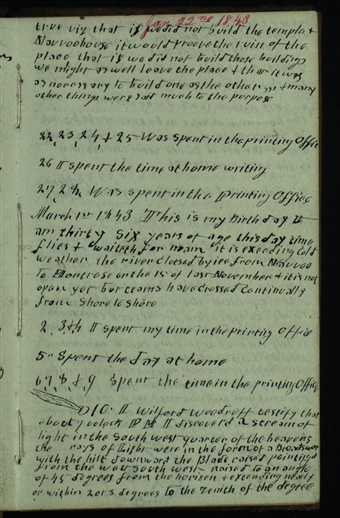 Jan 22nd 1843
true viz that if we did not build the temple &
Nauvoo house it would proove the ruin of the
place that if we did not build those buildings
we might as well leave the place & that it was
as necessary to build one as the other & many
other things were said much to the purpose
22, 23, 24, & 25 Was spent in the printing Office
26 I spent the time at home writing
27, 28, Was spent in the Printing Office
March 1st 1843 This is my Birth day I
am thirty six years of age this day time
flies & waiteth for no man it is exceding cold
weather the river closed by ice from Nauvoo
to Montrose on the 15 of last November & it is not
open yet but teams have crossed continually
from shore to shore
2, 3, & 4 I spent my time in the printing Office
5th Spent the day at home
6, 7, 8, & 9 Spent the time in the printing Office
10th I Wilford Woodruff testify that
about 7 oclock PM I discoverd a stream of
light in the South west quarter of the heavens
the rays of light were in the form of a Broad sword
with the hilt downward the Blade raised pointing
from the west south west raised to an angle
of 45 degrees from the horizon & extending nearly
or within 2 or 3 degrees to the zenith of the degree